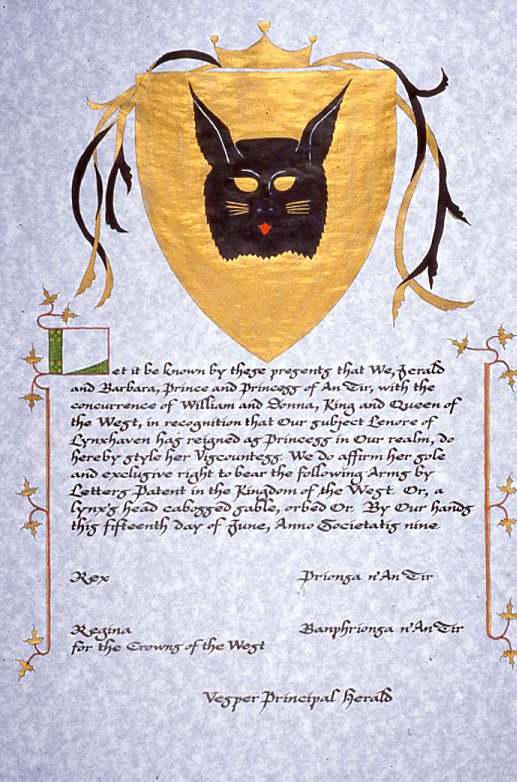 Let it be known by these presents that We, Jerald
and Barbara, Prince and Princess of An Tir, with the
concurrence of William and Donna, King and Queen of
the West, in recognition that Our subject Lenore of
Lynxhaven has reigned as Princess in Our realm, do
hereby style her Viscountess. We do affirm her sole
and exclusive right to bear the following Arms by
Letters Patent in the Kingdom of the West. Or, a
lynx's head cabossed sable, orbed Or. By Our hands
this fifteenth day of June, Anno Societatis nine.
Rex
Prionsa n'An Tir
Regina
Banphrionsa n'An Tir
for the Crowns of the West
Vesper Principal Herald